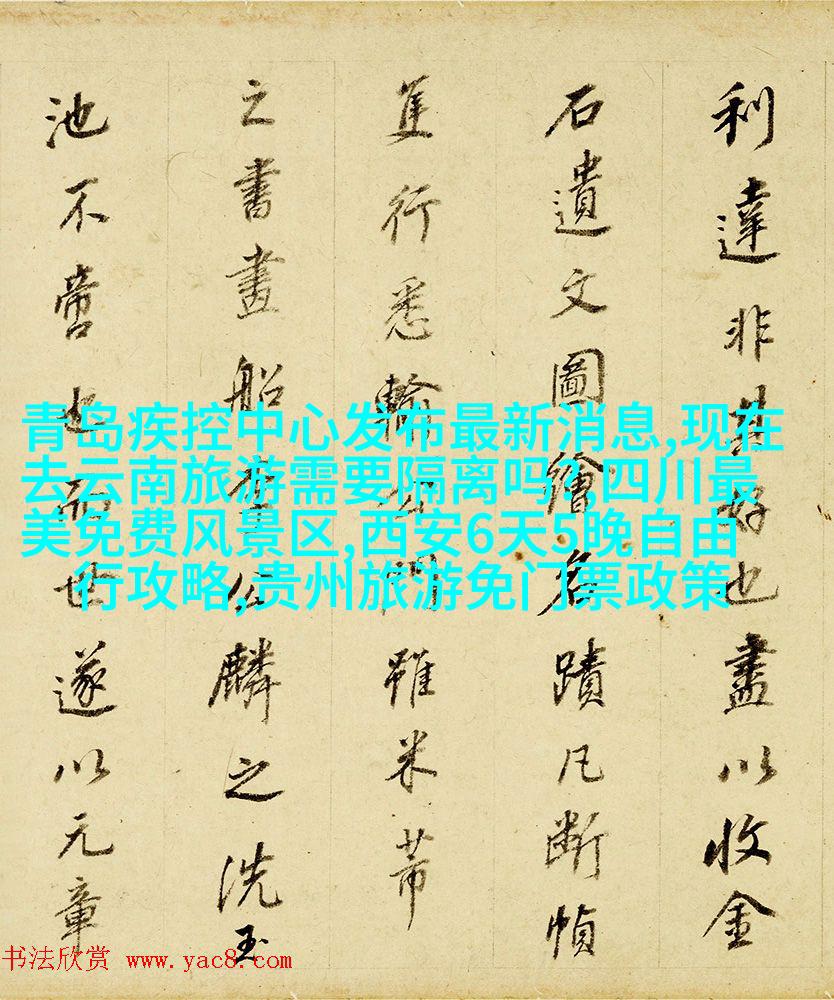 利達非其好也盡以收金
石遺文圖繪名蹟凡斷幀
隻行悉輸公門雖米芾
之書畫船李公麟之洗玉
池不啻也而世遂以元章
青岛疾控中心发布最新消息,现在
去云南旅游需要隔离吗?,四川最
美免费风景区,西安6天5晚自由
行攻略,贵州旅游免门票政策
书法欣赏 www.yac8.com